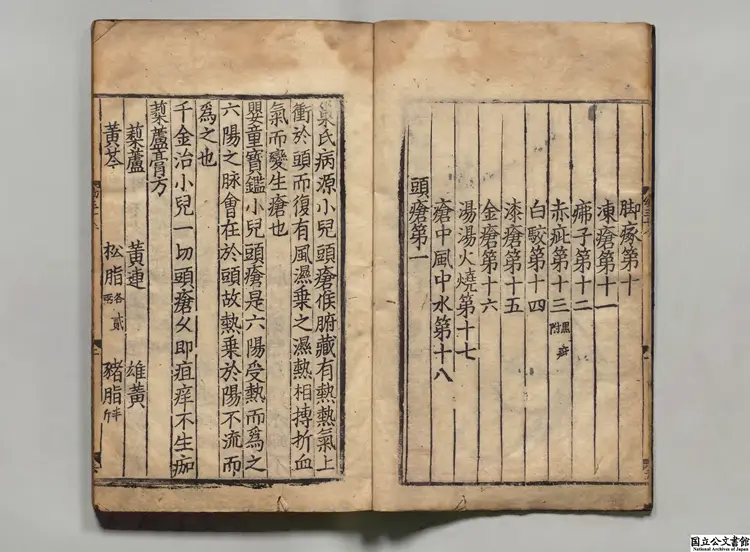 脚瘃第十
凍瘡第十一
疿子第十二
赤疵第十三 黑疵附
白駮第十四
漆瘡第十五
金瘡第十六
湯湯火燒第十七
瘡中風中水第十八
頭瘡第一
巢氏病源小兒頭瘡候腑藏有熱熱氣上
衝於頭而復有風濕乗之濕熱相搏折血
氣而變生瘡也
嬰童寶鑑小兒頭瘡是六陽受熱而爲之
六陽之脉會在於頭故熱乗於陽不流而
爲之也
千金治小兒一切頭瘡久即疽痒不生痂
藜蘆膏方
藜蘆 黄連 雄黄
黄芩 松脂各 貳 豬脂半斤
国立公文書館
National Archives of Japan